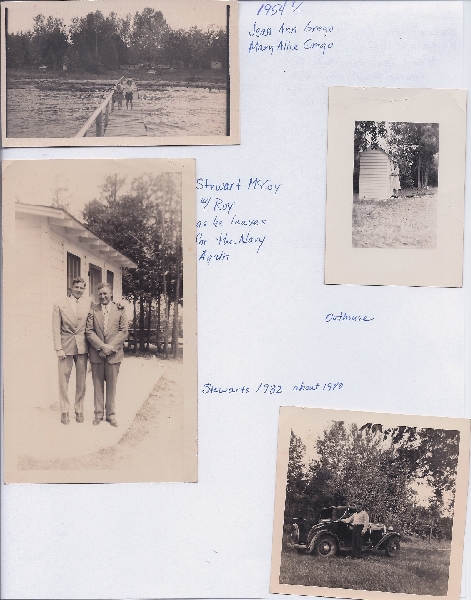 1954
Jean Ann Crego
Mary Alice Crego
Stewart McVoy
w/ Roy
as he leaves
for the Navy
Again
Outhouse
Stewarts 1932 about 1940